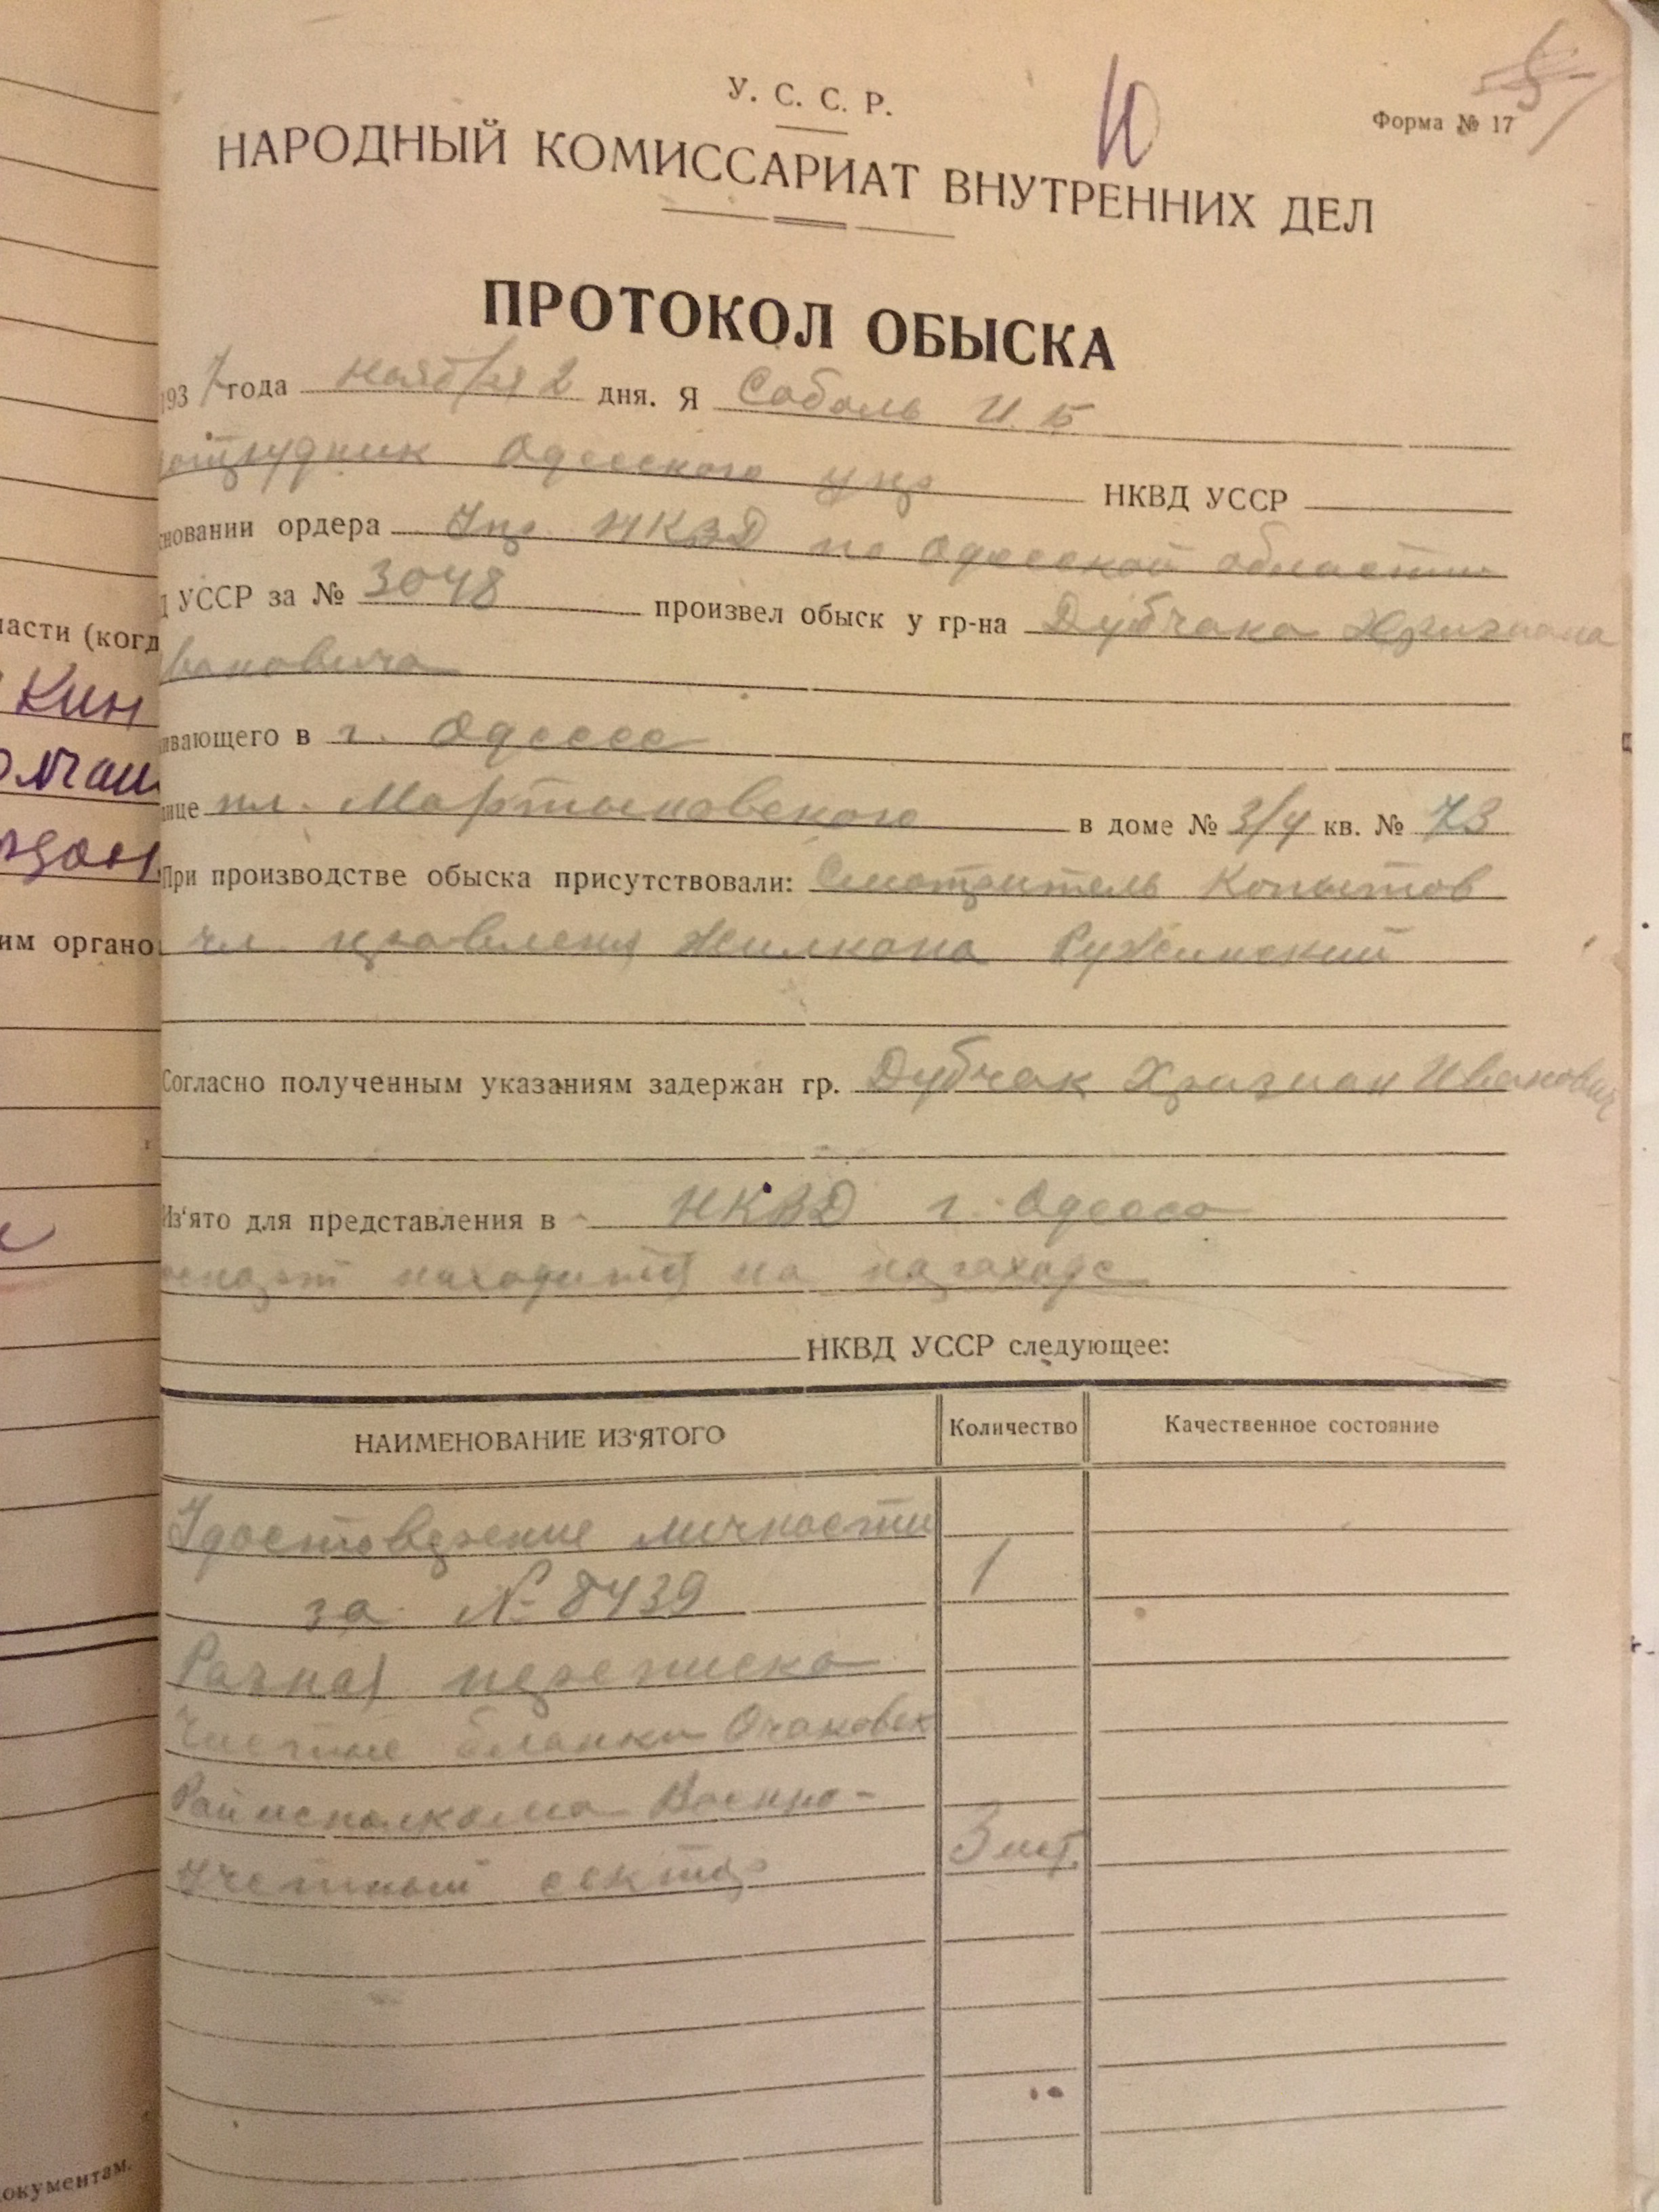 У. С. С. Р.
Форма № 17
НАРОДНЫЙ КОМИССАРИАТ ВНУТРЕННИХ ДЕЛ
ПРОТОКОЛ ОБЫСКА
1937 года ноября 2 дня. Я Соболь И. Б
отрудник Одесского упр НКВД УССР
сновании ордера Упр. НКВД по Одесской области
Д УССР за № 3048 произвел обыск у гр-на Дубчака Хризмана
вановича
ивающего в г. Одессе
лице пл. Мартыновского в доме № 3/4 кв. № 73
При производстве обыска присутствовали: Смотритель Копытов
чл. правления Жилкопа Ружинский
Согласно полученным указаниям задержан гр. Дубчак Хризман Иванович
Из‘ято для представления в НКВД г. Одесса
аспорт находится на пароходе
НКВД УССР следующее:
НАИМЕНОВАНИЕ ИЗ‘ЯТОГО Количество Качественное состояние
Удостоверение личности
за № 8439 1
Разная переписка
Чистые бланки Очаковск
Райисполкома Военно-
Учетный сектор 3 шт.
ласти (когд
кин
им органо
окументам.